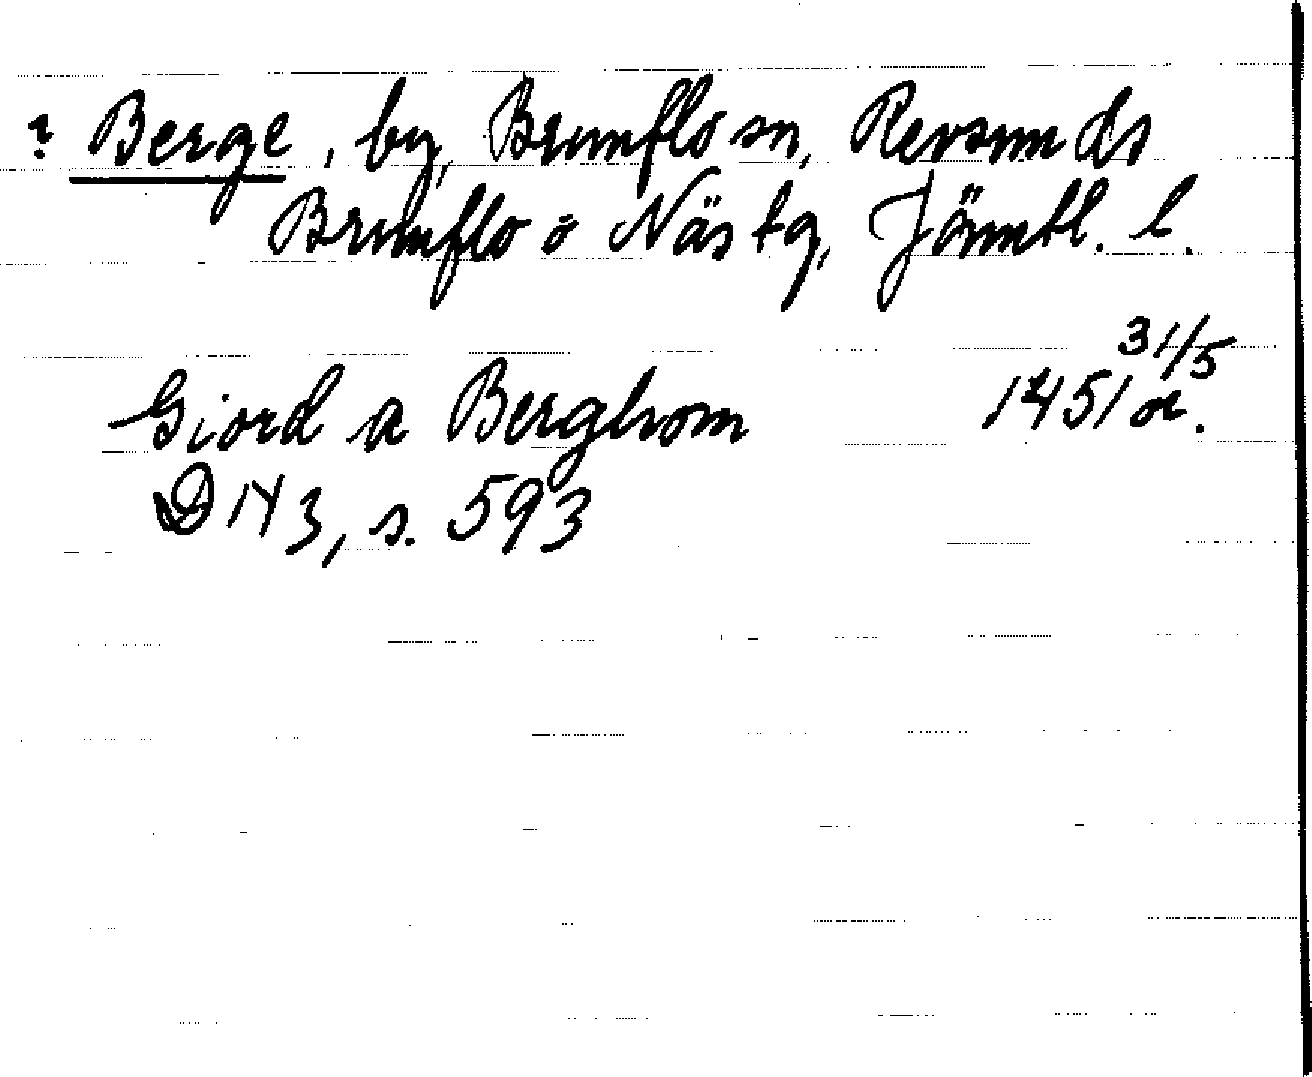 ? Berge, by, Brunflo sn, Revsunds
Brunflo o Näs tg, Jämtl. l.
Giord a Berghom 1451 31/5 or.
DN 3, s. 593